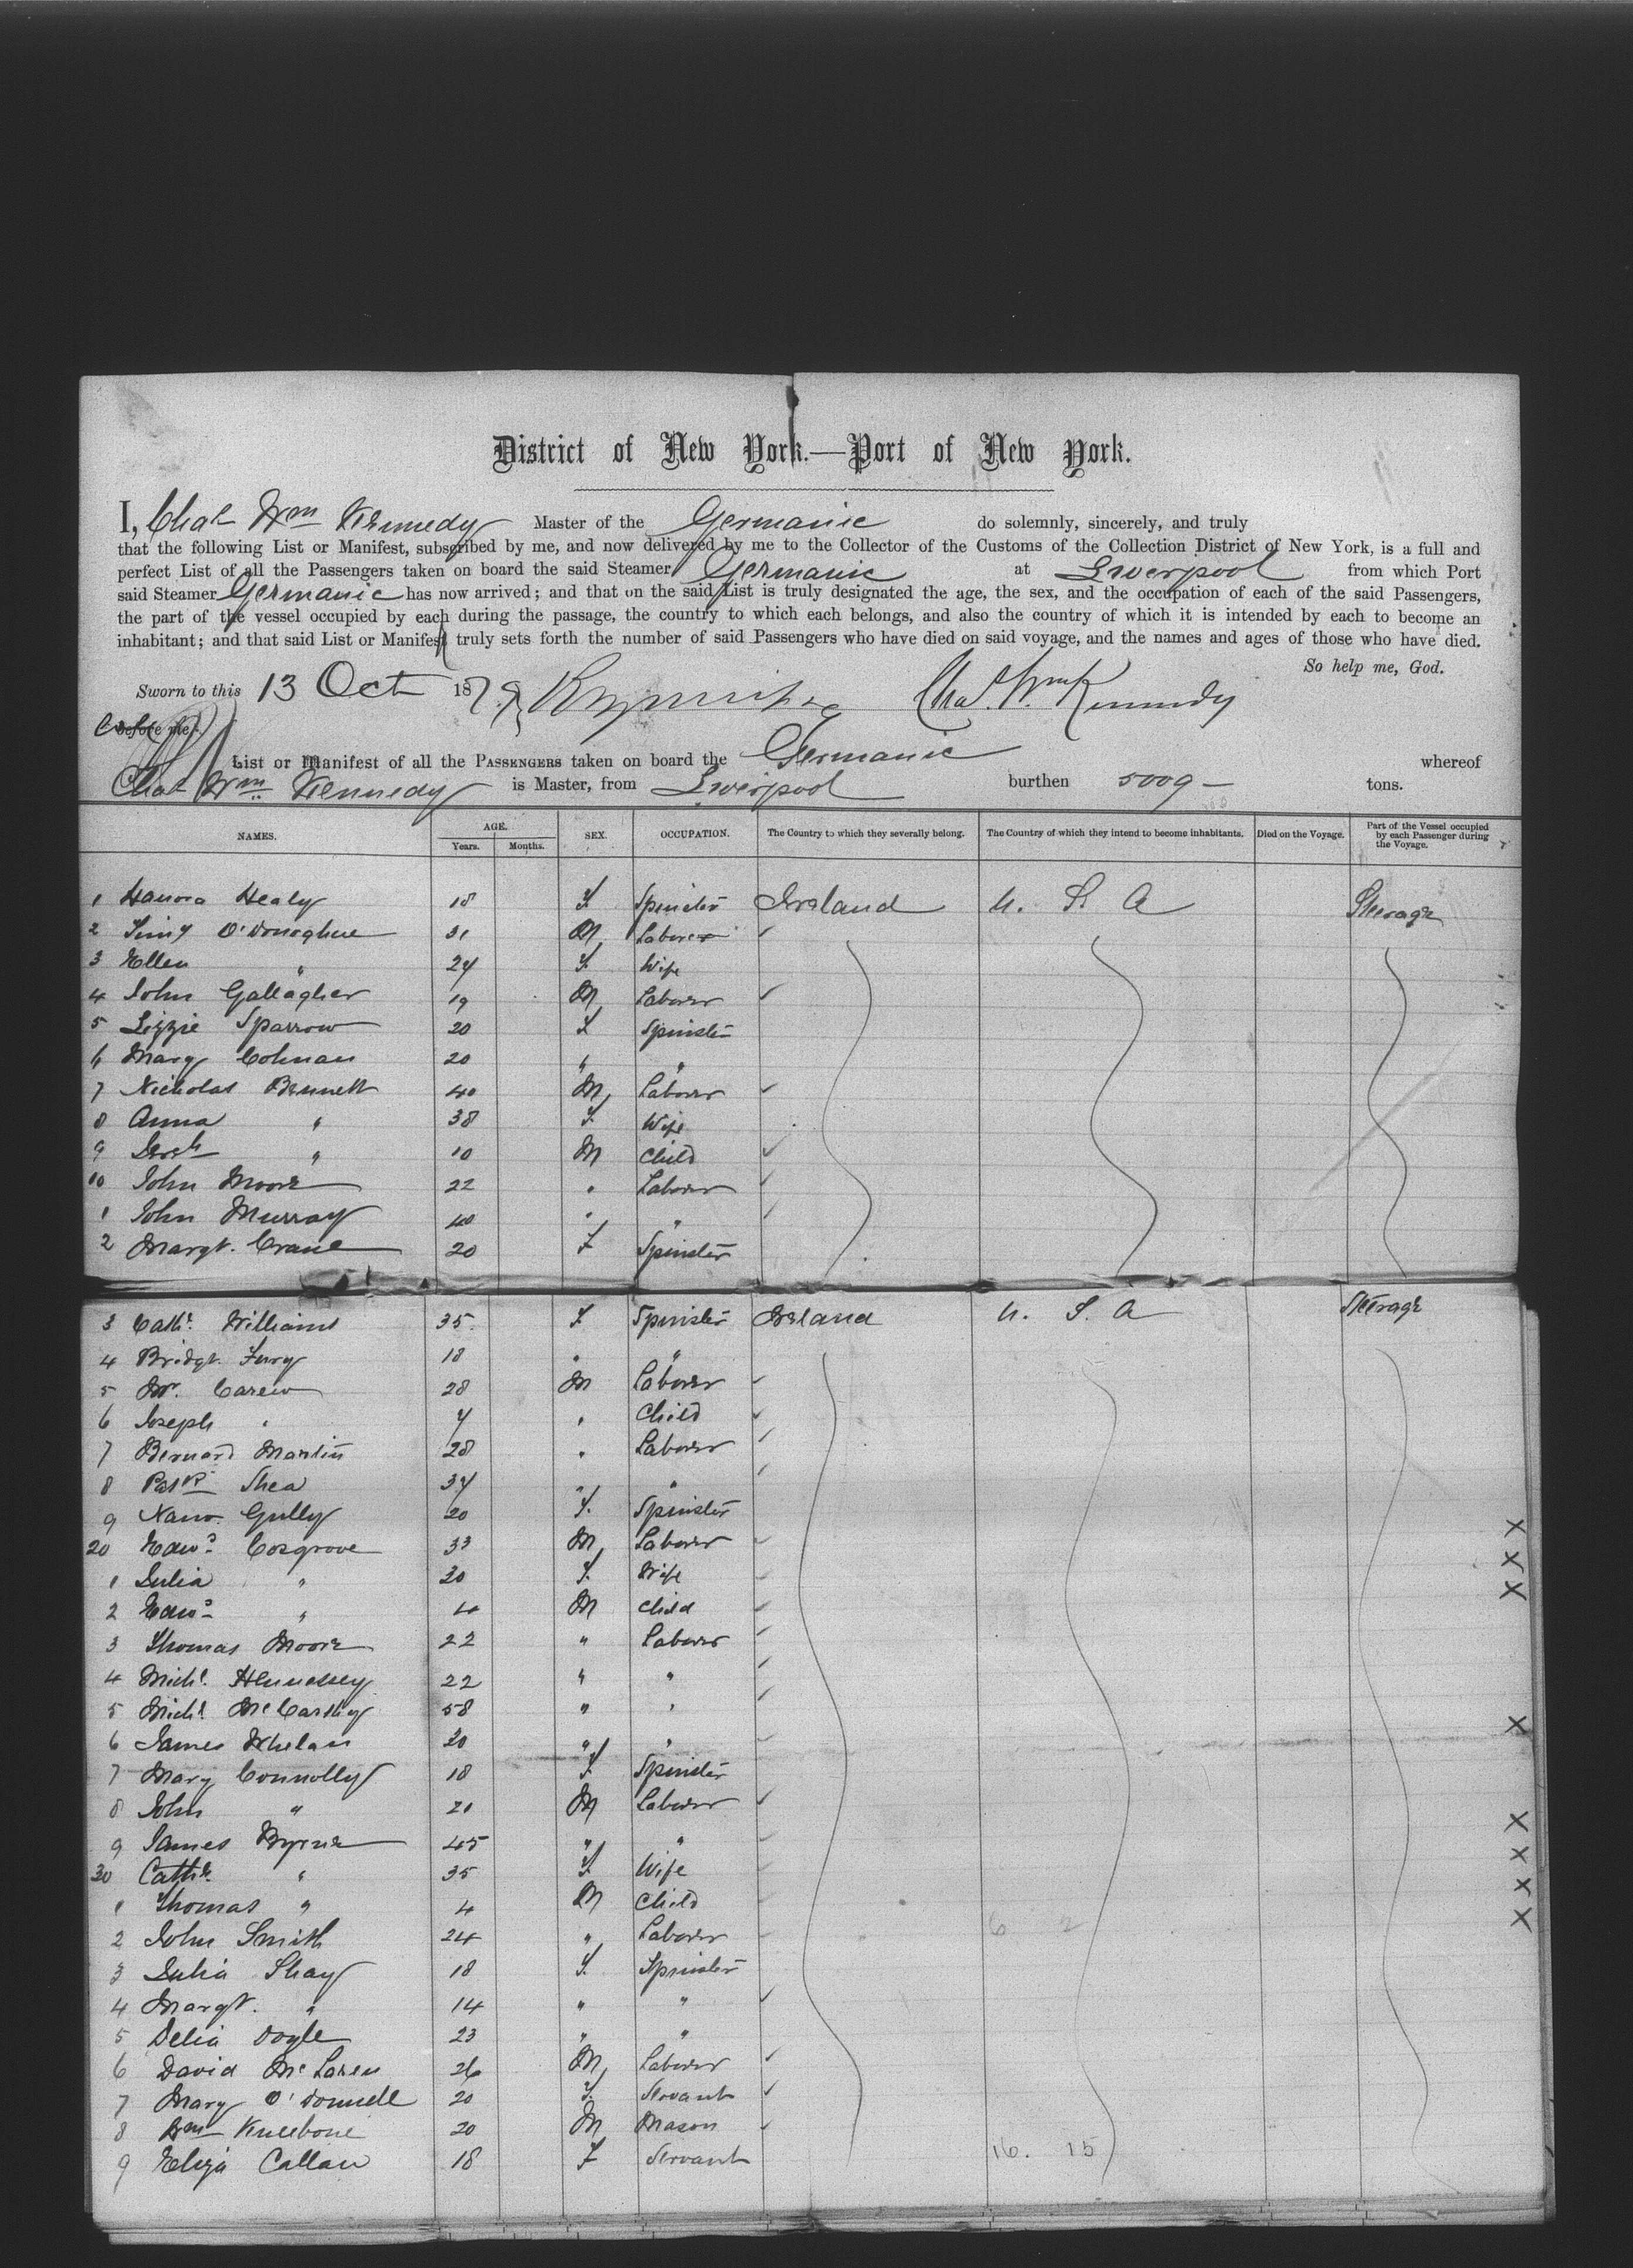 District of New York.—Port of New York.
I, Chas Wm Kennedy Master of the Germanic do solemnly, sincerely, and truly
that the following List or Manifest, subscribed by me, and now delivered by me to the Collector of the Customs of the Collection District of New York, is a full and
perfect List of all the Passengers taken on board the said Steamer Germanic at Liverpool from which Port
said Steamer Germanic has now arrived; and that on the said List is truly designated the age, the sex, and the occupation of each of the said Passengers,
the part of the vessel occupied by each during the passage, the country to which each belongs, and also the country of which it is intended by each to become an
inhabitant; and that said List or Manifest truly sets forth the number of said Passengers who have died on said voyage, and the names and ages of those who have died.
So help me, God.
Sworn to this 13 Oct 1879 Chas. Wm Kennedy
before me
List or Manifest of all the PASSENGERS taken on board the Germanic whereof
Chas Wm Kennedy is Master, from Liverpool burthen 5009 — tons.
NAMES. AGE. Years. Months. SEX. OCCUPATION. The Country to which they severally belong. The Country of which they intend to become inhabitants. Died on the Voyage. Part of the Vessel occupied by each Passenger during the Voyage.
1 Hanora Healy 18 F Spinster Ireland U. S. A Steerage
2 Timy O'Donoghue 31 M Laborer
3 Ellen " 24 F. Wife
4 John Gallagher 19 M Laborer
5 Lizzie Sparrow 20 F Spinster
6 Mary Colman 20 " "
7 Nicholas Bennett 40 M Laborer
8 Anna " 38 F. Wife
9 " 10 M Child
10 John Moore 22 " Laborer
1 John Murray 40 " "
2 Margt. Crane 20 F Spinster
3 Cathe. Williams 35 F Spinster Ireland U. S. A Steerage
4 Bridgt. Fury 18 " "
5 Carew 28 M Laborer
6 Joseph " 7 " Child
7 Bernard Martin 28 " Laborer
8 Patk Shea 37 " "
9 Gully 20 F. Spinster
20 Edwd Cosgrove 33 M Laborer
1 Julia " 30 F. Wife
2 Edwd " 4 M Child
3 Thomas Moore 22 " Laborer
4 Michl. Hennessey 22 " "
5 Michl. McCarthy 58 " "
6 James Whelan 20 " "
7 Mary Connolly 18 F. Spinster
8 John " 21 M Laborer
9 James Byrne 45 " "
30 Cathe. " 35 F. Wife
1 Thomas " 4 M Child
2 John Smith 24 " Laborer
3 Julia Shay 18 F. Spinster
4 Margt. " 14 " "
5 Delia Doyle 23 " "
6 David McLaren 26 M Laborer
7 Mary O'Donnell 20 F. Servant
8 Wm Kneebone 20 M Mason
9 Eliza Callan 18 F Servant
16. 15